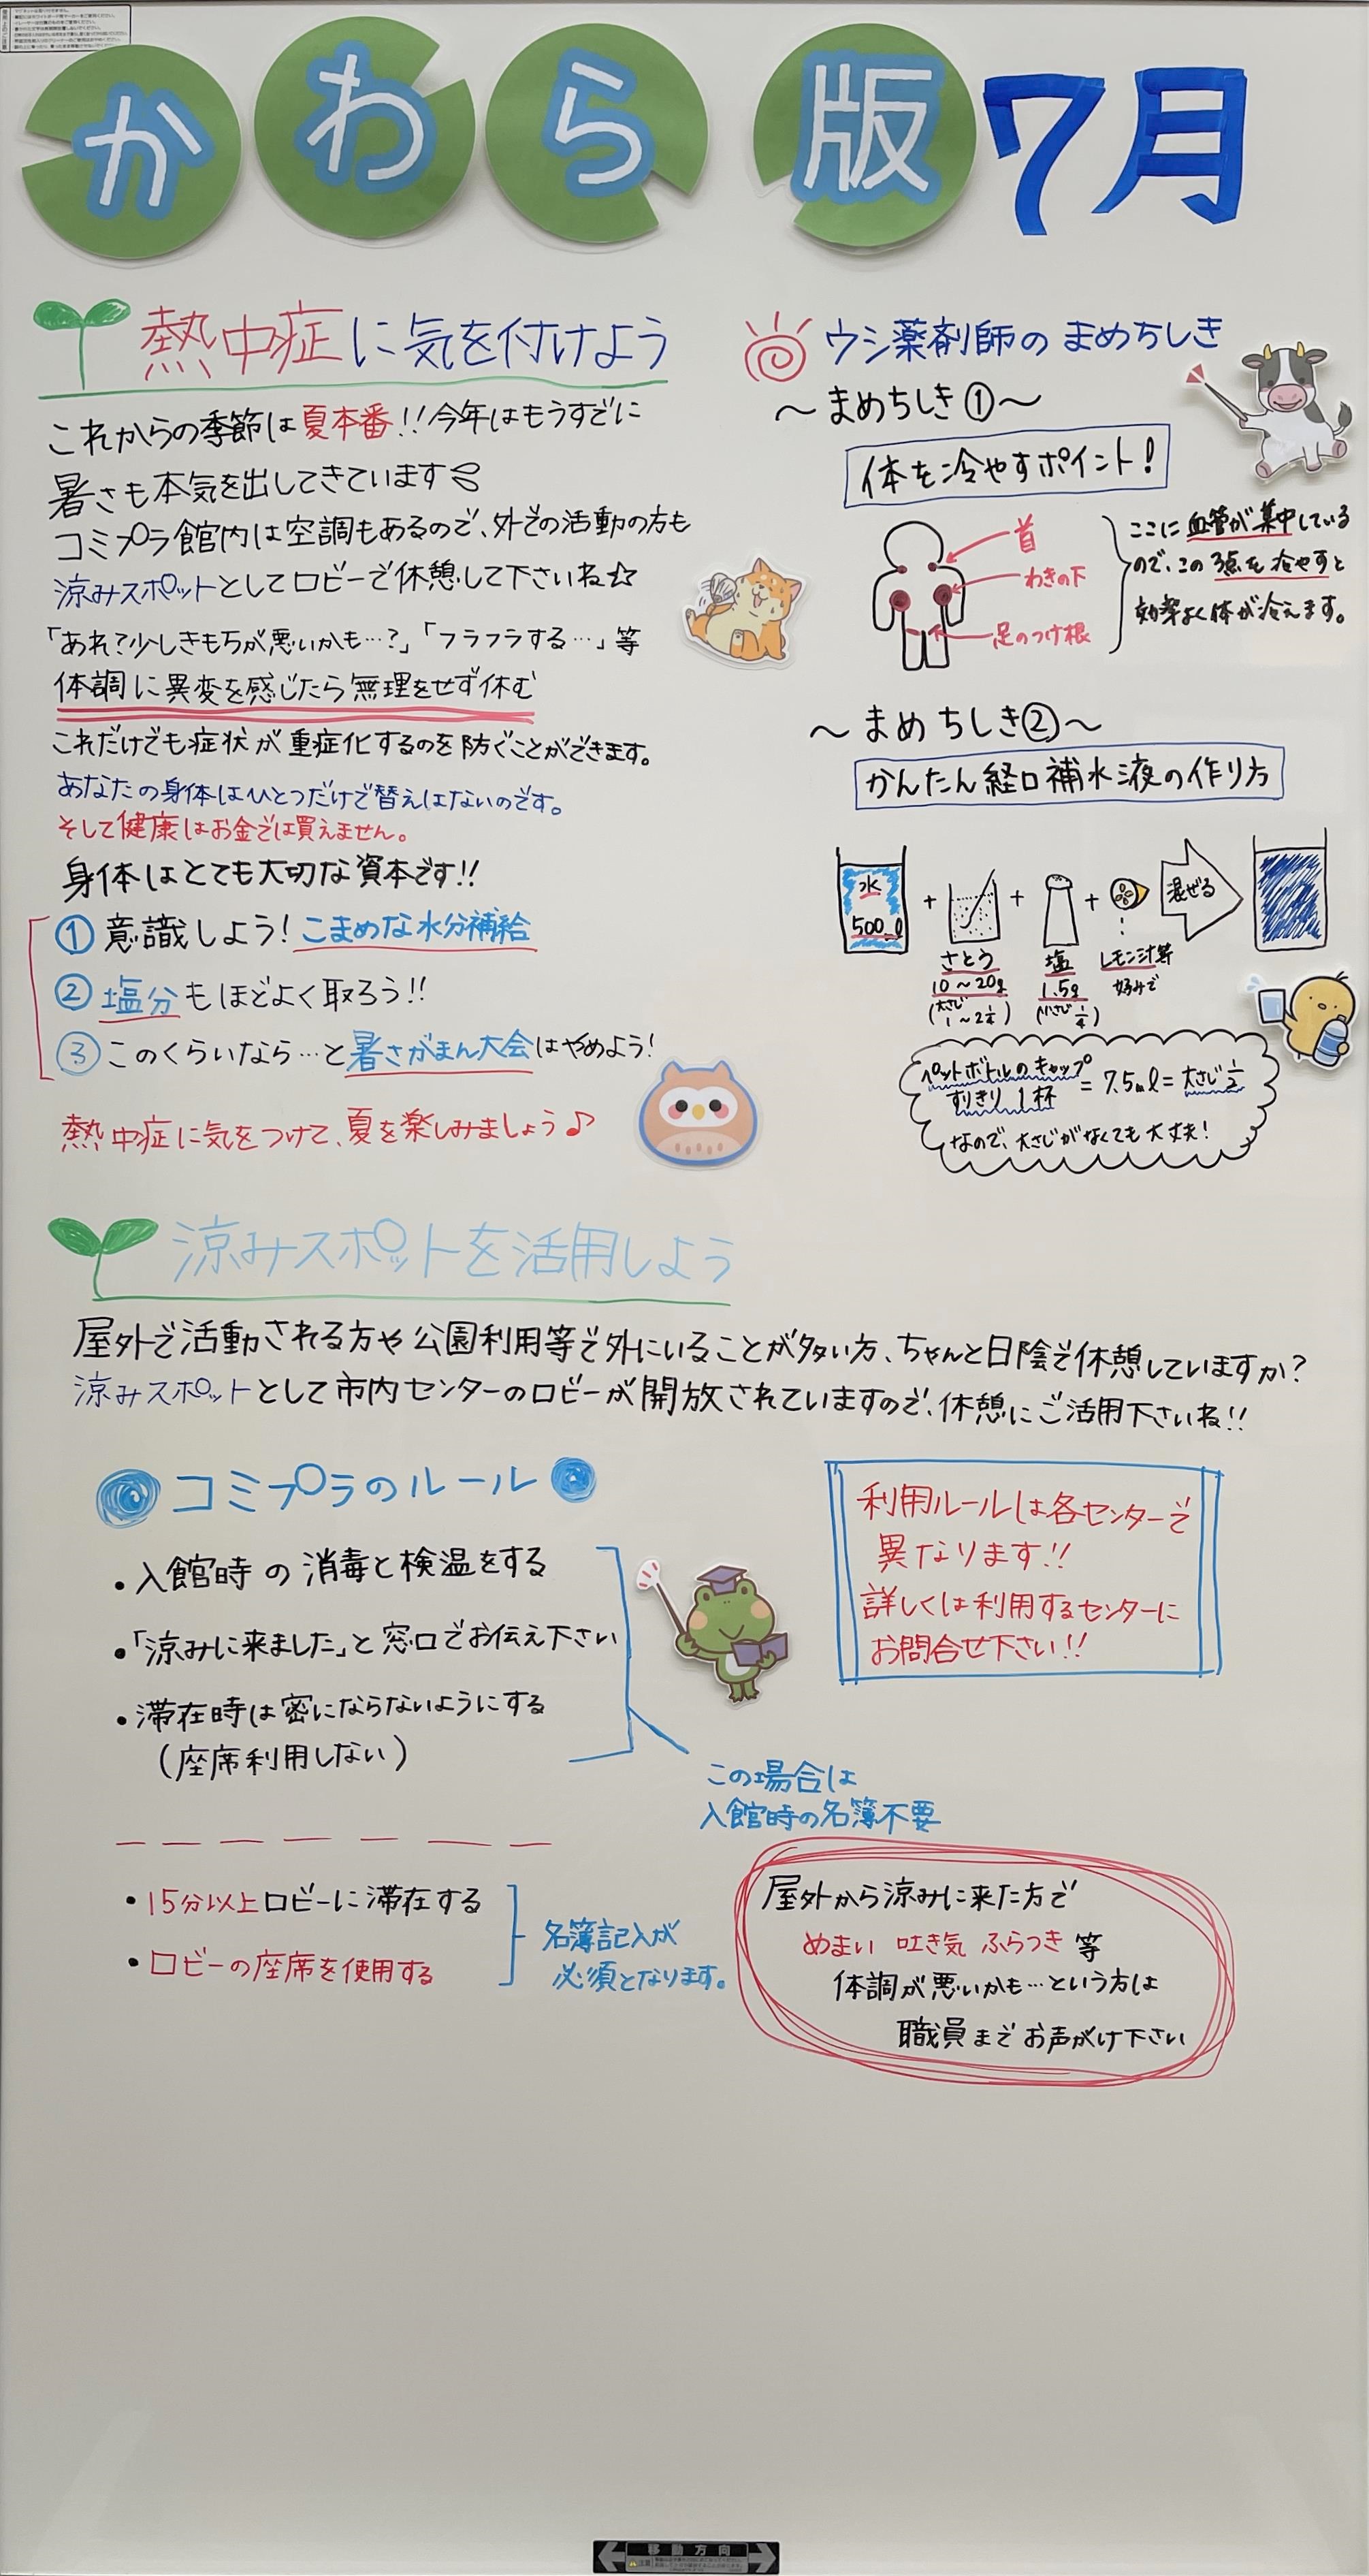 かわら版 7月
熱中症に気を付けよう
これからの季節は夏本番!!今年はもうすでに
暑さも本気を出してきています
コミプラ館内は空調もあるので、外での活動の方も
涼みスポットとしてロビーで休憩して下さいね☆
「あれ?少しきもちが悪いかも…?」「フラフラする…」等
体調に異変を感じたら無理をせず休む
これだけでも症状が重症化するのを防ぐことができます。
あなたの身体はひとつだけで替えはないのです。
そして健康はお金では買えません。
身体はとても大切な資本です!!
① 意識しよう!こまめな水分補給
② 塩分もほどよく取ろう!!
③ このくらいなら…と暑さがまん大会はやめよう!
熱中症に気をつけて、夏を楽しみましょう♪
ウシ薬剤師の まめちしき
〜まめちしき①〜
体を冷やすポイント!
首
わきの下
足のつけ根
ここに血管が集中している
ので、この3点を冷やすと
効率よく体が冷えます。
〜まめちしき②〜
かんたん経口補水液の作り方
水
500ml
+
さとう
10〜20g
(大さじ
1〜2 1/4)
+
塩
1.5g
(小さじ 1/4)
+
レモン汁等
好みで
混ぜる
ペットボトルのキャップ
すりきり 1杯
= 7.5ml = 大さじ 1/2
なので、大さじがなくても大丈夫!
涼みスポットを活用しよう
屋外で活動される方や公園利用等で外にいることが多い方、ちゃんと日陰で休憩していますか?
涼みスポットとして市内センターのロビーが開放されていますので、休憩にご活用下さいね!!
コミプラのルール
・入館時の消毒と検温をする
・「涼みに来ました」と窓口でお伝え下さい
・滞在時は密にならないようにする
(座席利用しない)
この場合は
入館時の名簿不要
利用ルールは各センターで
異なります!!
詳しくは利用するセンターに
お問合せ下さい!!
・15分以上ロビーに滞在する
・ロビーの座席を使用する
名簿記入が
必須となります。
屋外から涼みに来た方で
めまい 吐き気 ふらつき 等
体調が悪いかも…という方は
職員までお声がけ下さい
移動方向